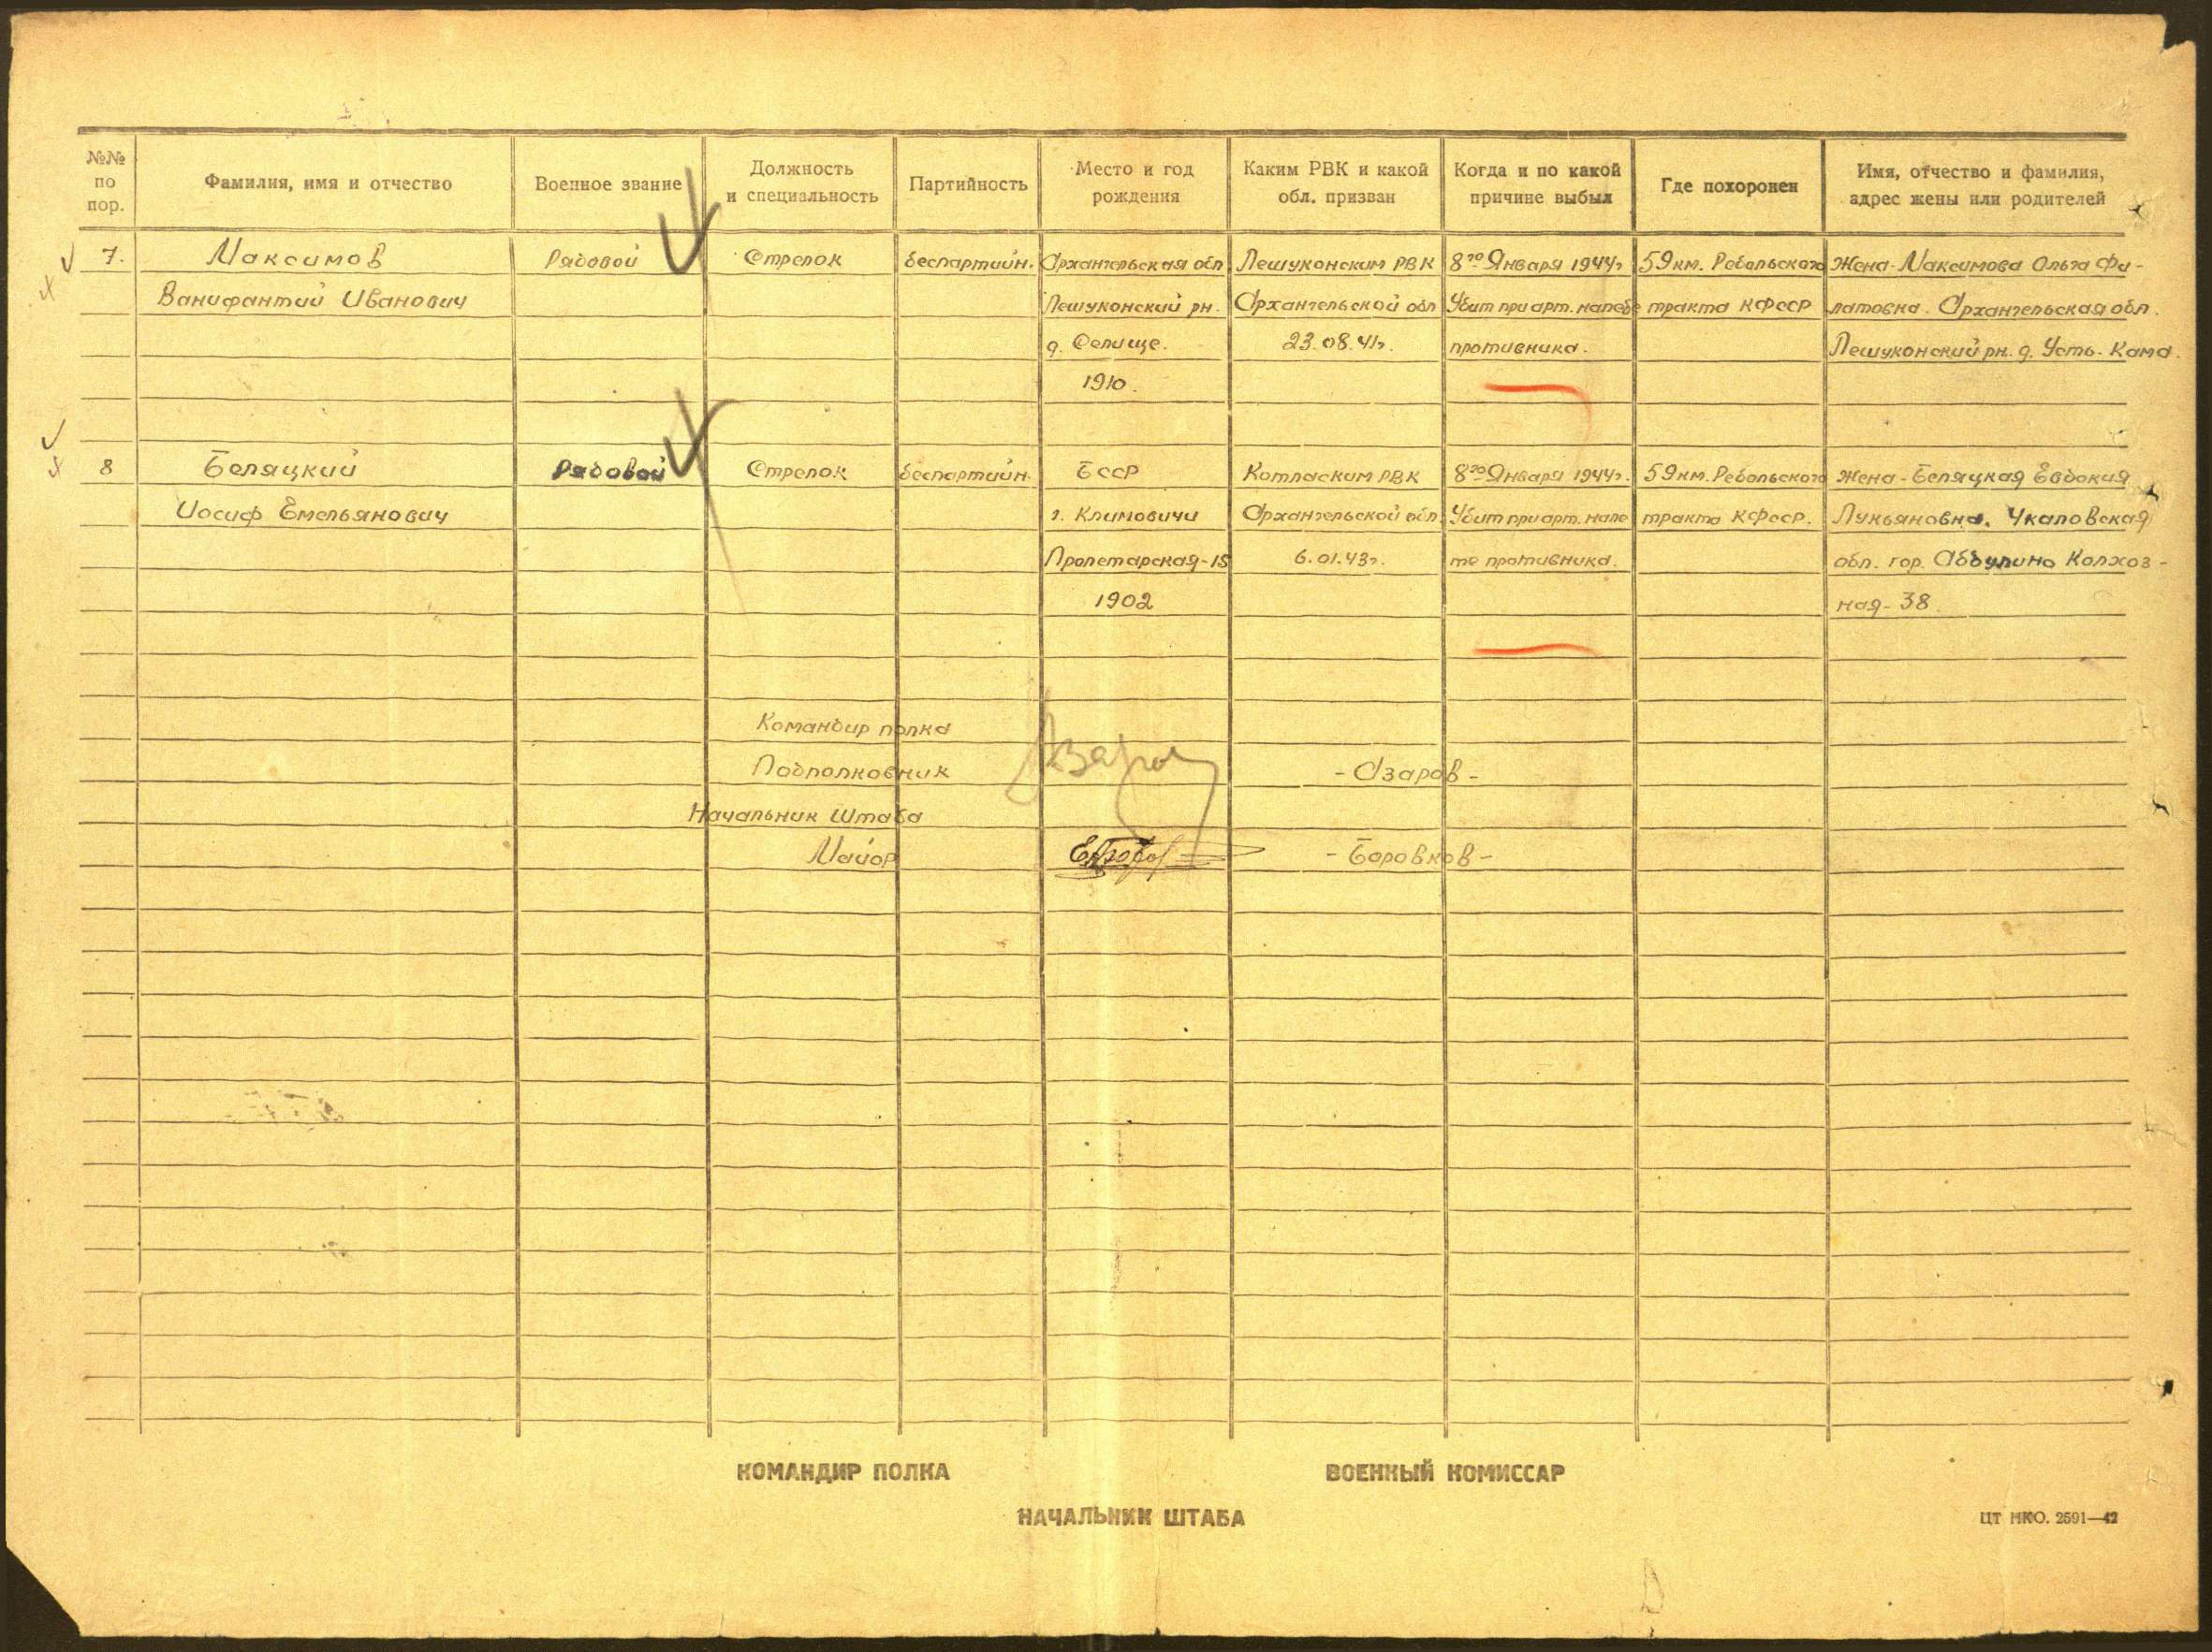 №№ по пор.
Фамилия, имя и отчество
Военное звание
Должность и специальность
Партийность
Место и год рождения
Каким РВК и какой обл. призван
Когда и по какой причине выбыл
Где похоронен
Имя, отчество и фамилия, адрес жены или родителей
7. Максимов Рядовой Стрелок беспартийн. Архангельская обл Лешуконским РВК 8го Января 1944г 59 км. Ребольского Жена-Максимова Ольга Фи-
Ванифантий Иванович Лешуконский рн. Архангельской обл Убит при арт. налёте тракта КФССР латовна. Архангельская обл.
д. Селище. 23.08.41г. противника. Лешуконский рн. д. Усть-Кама.
1910.
8 Беляцкий Рядовой Стрелок беспартийн. БССР Котласким РВК 8го Января 1944г. 59 км. Ребольского Жена-Беляцкая Евдокия
Иосиф Емельянович г. Климовичи Архангельской обл. Убит при арт. нале тракта КФССР. Лукьяновна. Чкаловская
Пролетарская-15 6.01.43г. те противника. обл. гор. Абдулино Колхоз-
1902 ная-38
Командир полка
Подполковник -Азаров-
Начальник Штаба
Майор -Боровков-
КОМАНДИР ПОЛКА ВОЕННЫЙ КОМИССАР
НАЧАЛЬНИК ШТАБА ЦТ НКО. 2591—42